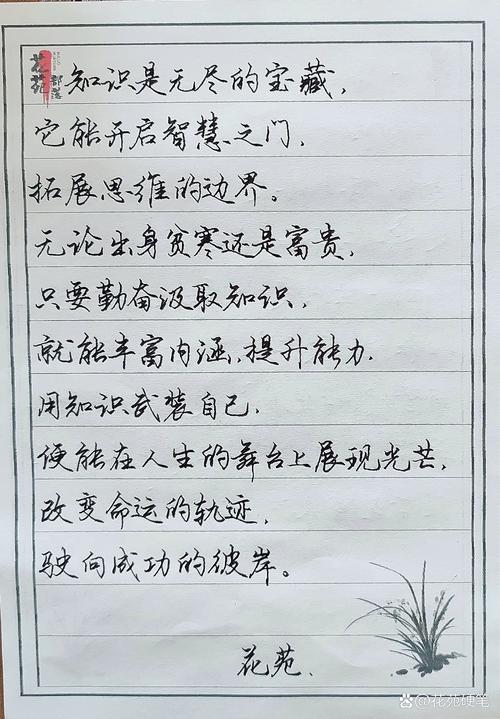 花苑部落
知识是无尽的宝藏,
它能开启智慧之门,
拓展思维的边界。
无论出身贫寒还是富贵,
只要勤奋汲取知识,
就能丰富内涵,提升能力.
用知识武装自己,
便能在人生的舞台上展现光芒,
改变命运的轨迹,
驶向成功的彼岸。
花苑.
@花苑硬笔